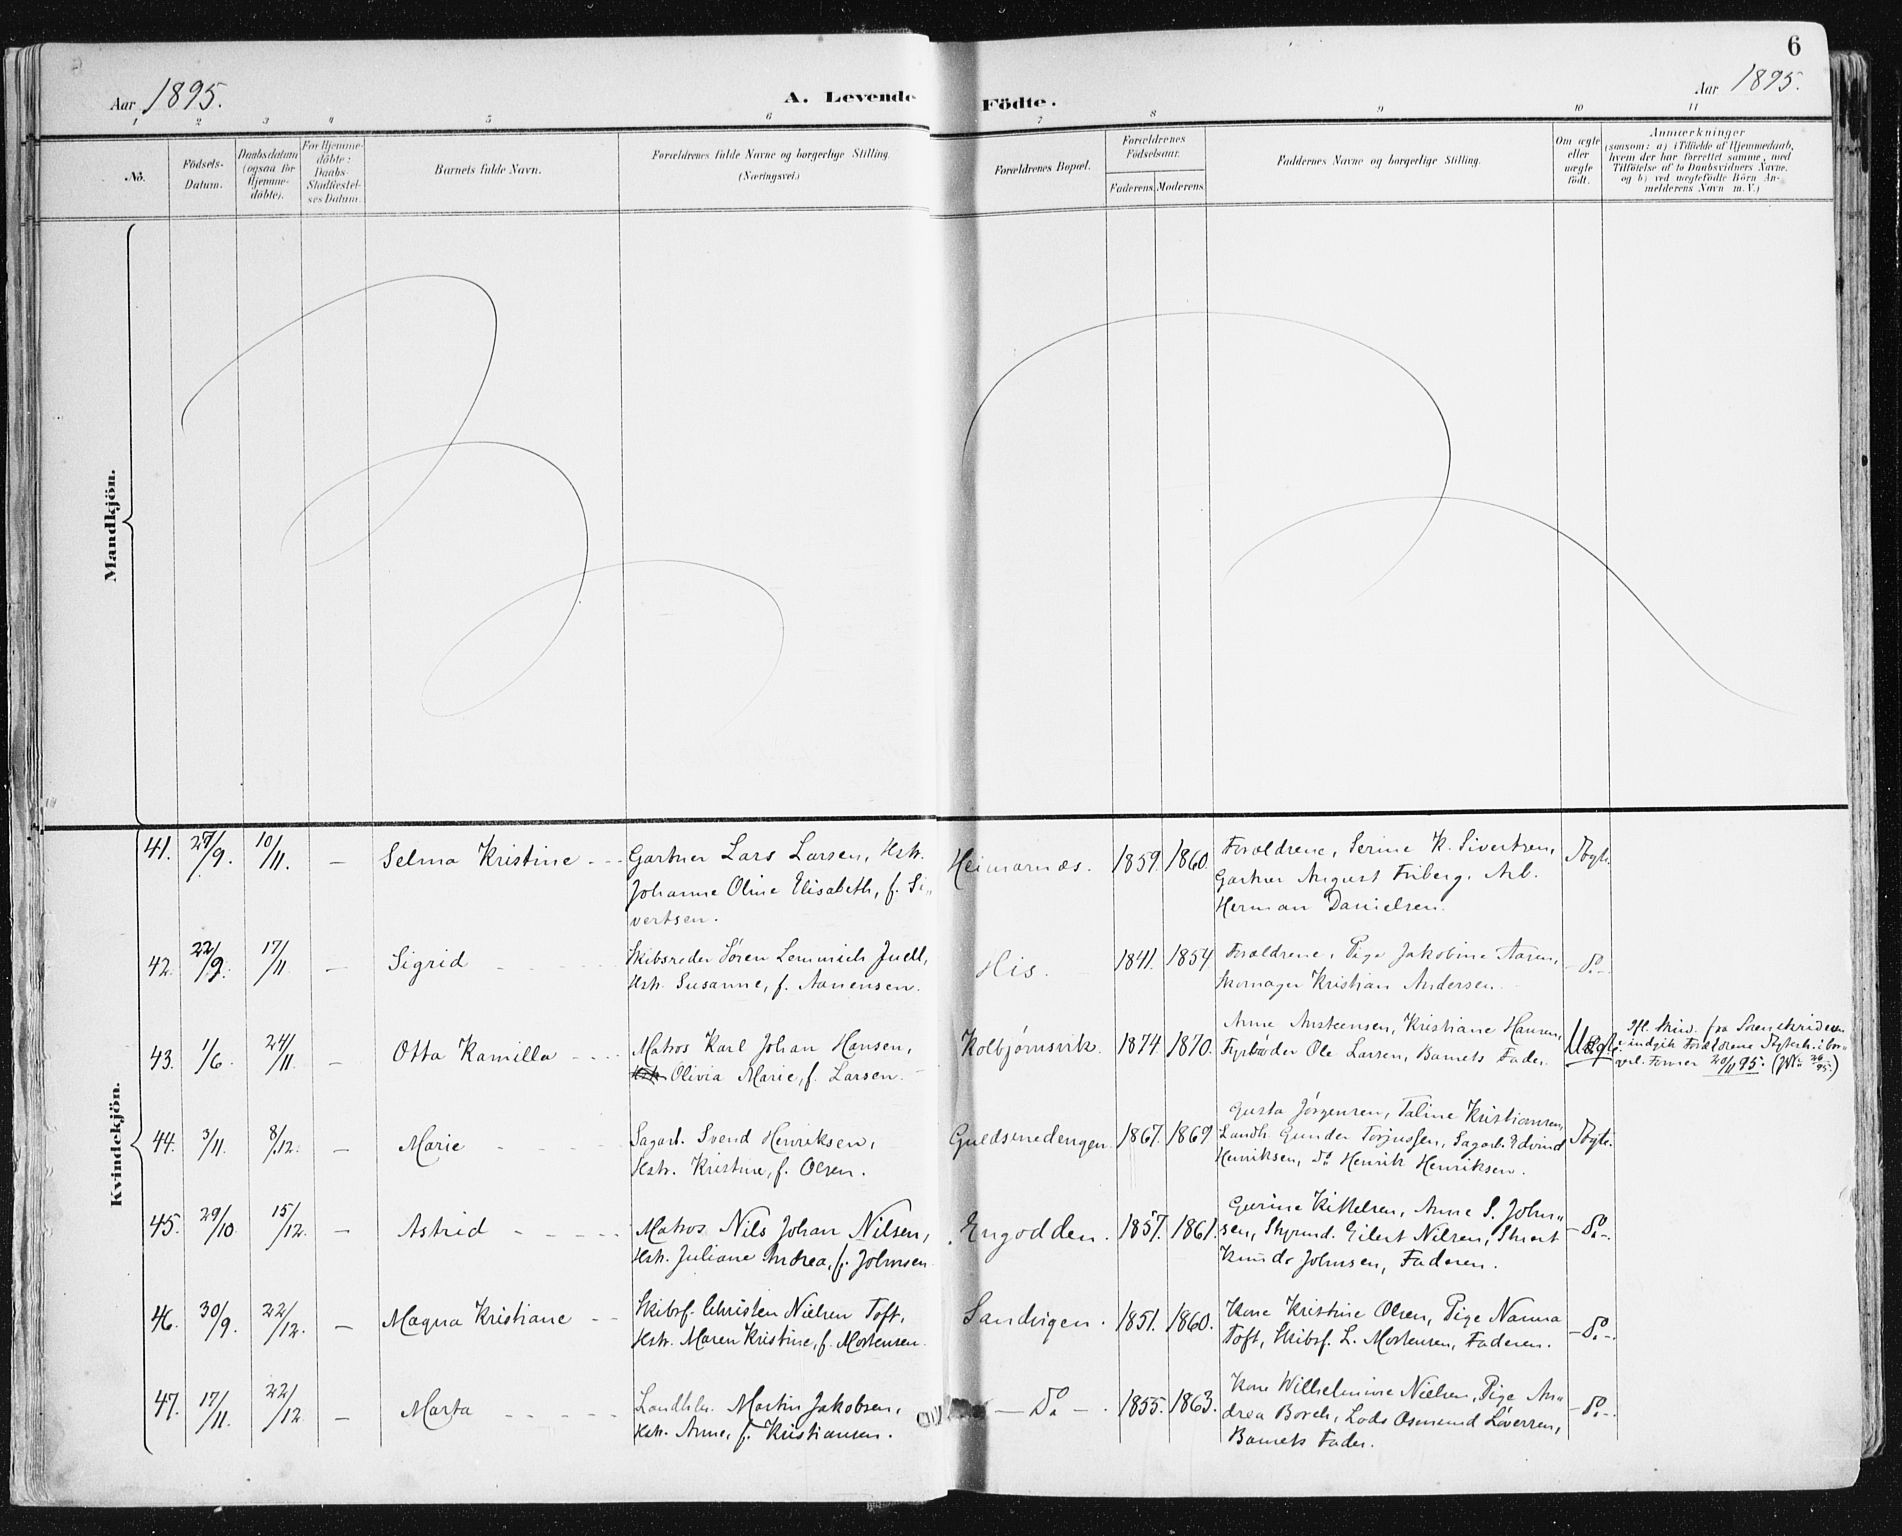 6
Aar 1895.
A. Levende Födte.
Aar 1895.
1 2 3 4 5 6 7 8 9 10 11
No.
Födsels-
Datum.
Daabsdatum
(ogsaa for
Hjemme-
döbte).
For Hjemme-
döbte:
Daabs-
Stadfæstel-
ses Datum.
Barnets fulde Navn.
Forældrenes fulde Navne og borgerlige Stilling.
(Næringsvei.)
Forældrenes Bopæl.
Forældrenes
Födselsaar.
Faderens. Moderens.
Faddernes Navne og borgerlige Stilling.
Om ægte
eller
uægte
födt.
Anmærkninger
(saasom: a) i Tilfælde af Hjemmedaab,
hvem der har forrettet samme, med
Tilföielse af to Daabsvidners Navne.
og b) ved uægtefödte Börn An-
melderens Navn m. V.)
Mandkjön.
Kvindekjön.
41. 27/9. 10/11. — Selma Kristine - - Gartner Lars Larsen, Hstr.
Johanne Oline Elisabeth, f. Si-
vertsen.
Heimarnæs. 1859. 1860.
Forældrene, Serine K. Sivertsen,
Gartner August Friberg, Arb.
Herman Danielsen.
Ægte.
42. 22/9. 17/11 — Sigrid - - - Skibsreder Sören Lemmich Juell,
Hstr. Susanne, f. Aanensen.
His. 1841. 1854
Forældrene, Pige Jakobine Aaren,
Skomager Kristian Andersen.
— Do —
43. 1/6. 24/11. — Otta Kamilla - - - Matros Karl Johan Hansen,
Olivia Marie, f. Larsen. -
Kolbjørnsvik. 1874 1870.
Anne Austeensen, Kristiane Hansen,
Fyrbøder Ole Larsen, Barnets Fader.
Uægte.
Ifl. Skriv. fra Sorenskriveren
indgik Forældrene Ægtesk. i bor-
verl. Former 20/11 95.
44. 3/11. 8/12. — Marie - - - Sagarb. Svend Henriksen,
Hstr. Kristine, f. Olsen.
Guldsmedengen. 1867. 1869
Gusta Jörgensen, Taline Kristiansen,
Landh. Gunder Torjussen, Sagarb. Edvind
Henriksen, Do Henrik Henriksen.
Ægte.
45. 29/10. 15/12. — Astrid - - - - Matros Nils Johan Nilsen,
Hstr. Juliane Andrea, f. Johnsen
Engodden. 1857. 1861.
Gurine Kittelsen, Anne S. John-
sen, Styrmd. Eilert Nilsen,
Knud Johnsen, Faderen.
— Do —
46. 30/9. 22/12. — Magna Kristiane - - Skibsf. Christen Nielsen Toft,
Hstr. Maren Kristine, f. Mortensen.
Sandvigen. 1851. 1860.
Kone Kristine Olsen, Pige Nanna
Toft, Skibsf. L. Mortensen, Faderen.
— Do —
47. 17/11. 22/12 — Marta - - - - Landhlr. Martin Jakobsen,
Hstr. Anne, f. Kristiansen.
— Do — 1855. 1863.
Kone Wilhelmine Nielsen, Pige An-
drea Borch, Lods Osmund Løversen,
Barnets Fader.
— Do —